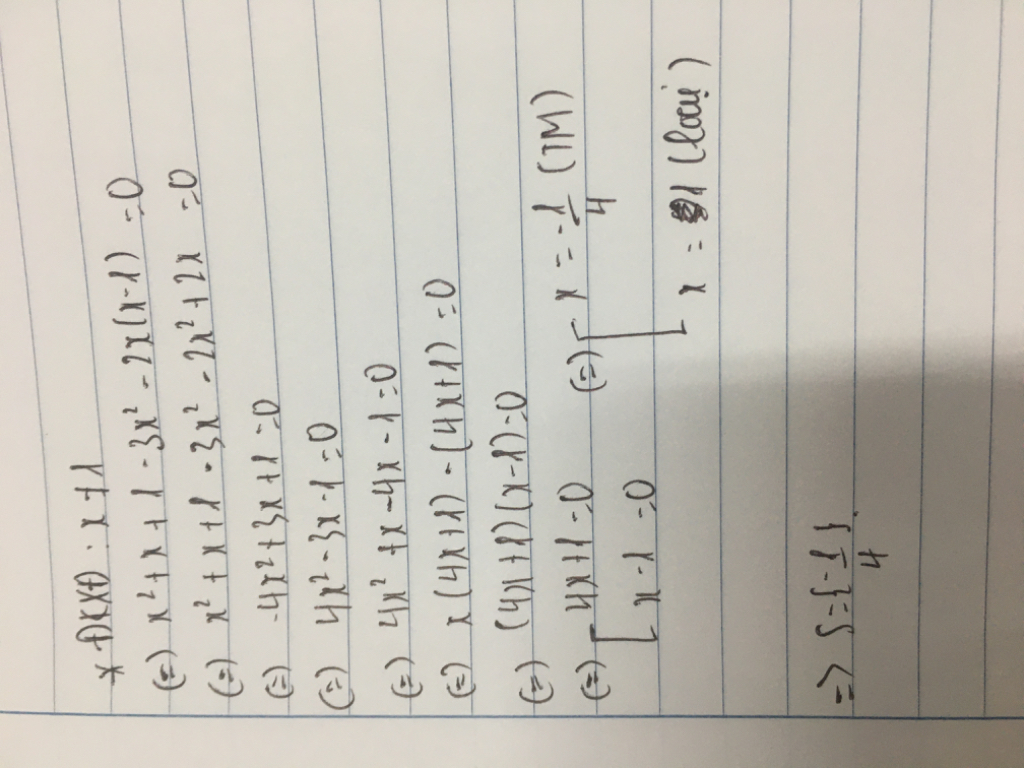 * ĐKXĐ: x ≠ 1
(=) x² + x + 1 - 3x² - 2x(x-1) = 0
(=) x² + x + 1 - 3x² - 2x² + 2x = 0
(=) -4x² + 3x + 1 = 0
(=) 4x² - 3x - 1 = 0
(=) 4x² + x - 4x - 1 = 0
(=) x(4x+1) - (4x+1) = 0
(=) (4x+1)(x-1) = 0
(=) [ 4x+1 = 0 (=) [ x = -1/4 (TM)
x - 1 = 0 x = 1 (loại)
=> S = {-1/4}.